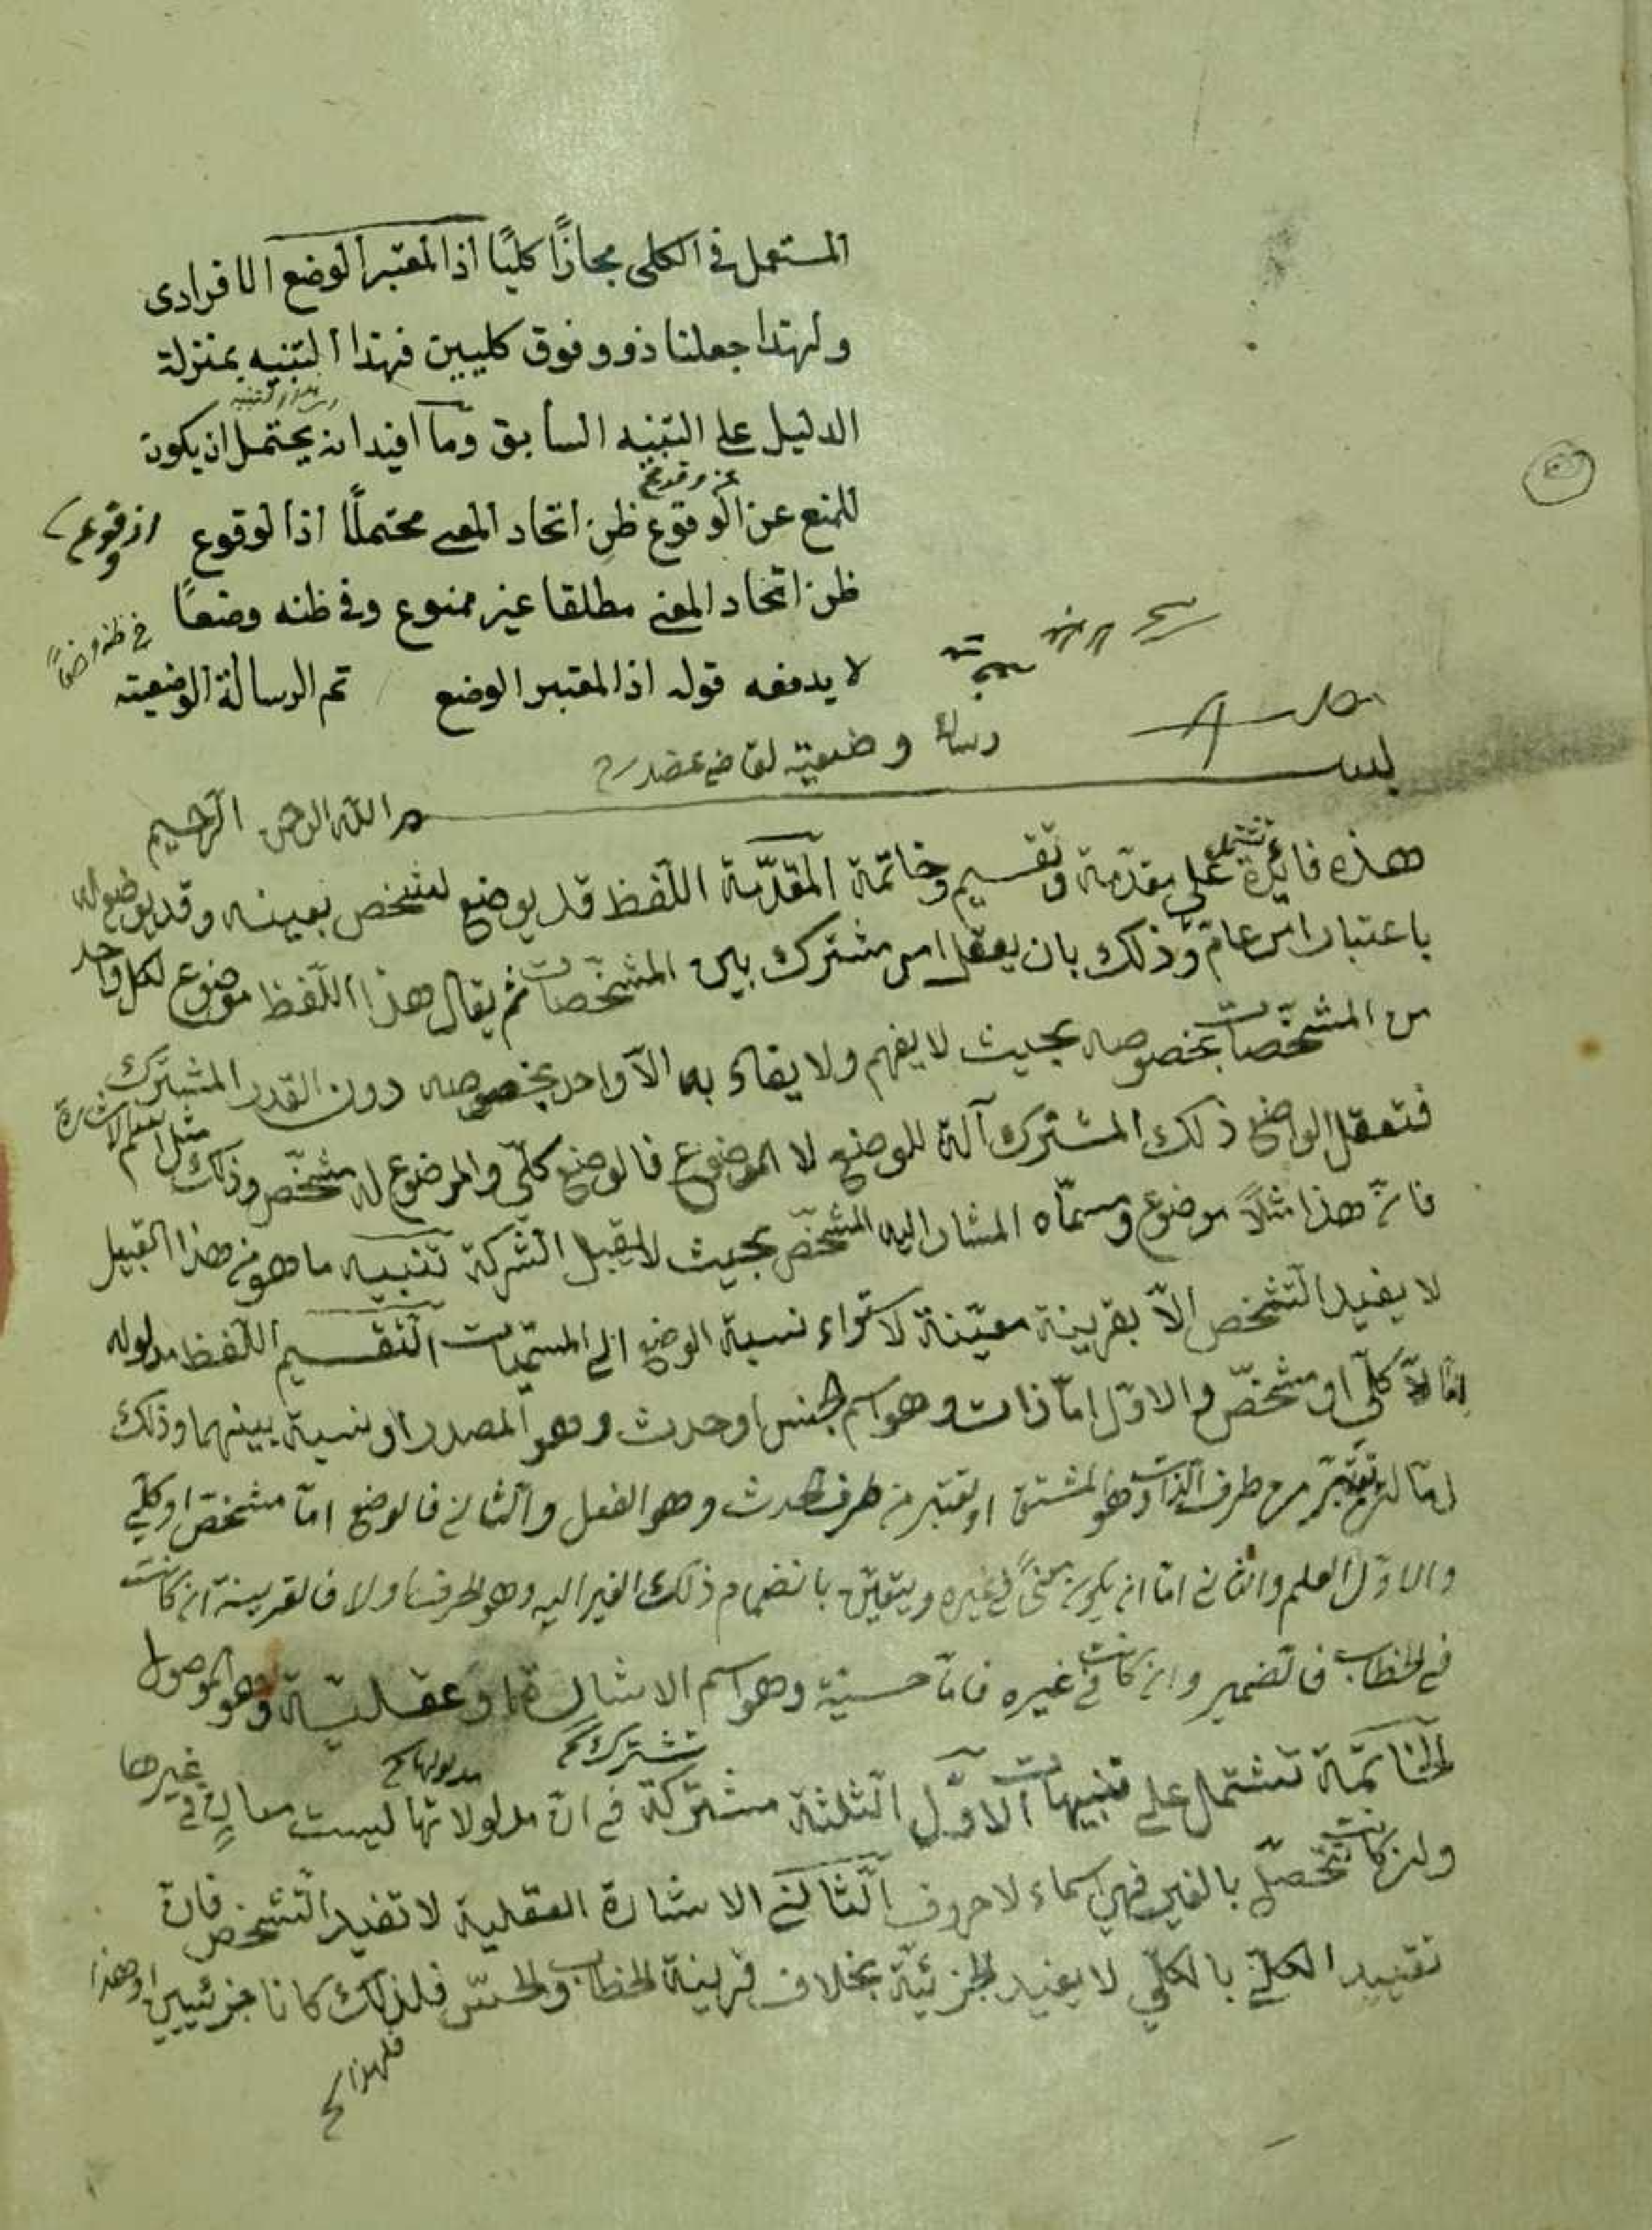 المستعمل في الكلى مجازًا كليًا اذ المعتبر الوضع الافرادى
ولهذا جعلنا ذو وفوق كليين فهذا التنبيه بمنزلة
الدليل على التنبيه السابق وما افيد انه يحتمل ان يكون
للمنع عن الوقوع ظن اتحاد المعنى محتملًا اذ الوقوع
ظن اتحاد المعنى مطلقا غير ممنوع وفى ظنه وضعًا
فى ظنه وضعًا
لا يدفعه قوله اذ المعتبر الوضع تم الرسالة الوضعيته
رسالة وضعيته لقاضى عضد
بسم الله الرحمن الرحيم
هذه فائدة تشتمل على مقدّمة وتقسيم وخاتمة المقدّمة اللّفظ قد يوضع لشخص بعينه وقد يوضع له
باعتبار امر عامّ وذلك بان يعقل امر مشترك بين المشخّصات ثم يقال هذا اللّفظ موضوع لكل واحد
من المشخّصات بخصوصه بحيث لا يفهم ولا يفاد به الّا واحد بخصوصه دون القدر المشترك
فتعقل الواضع ذلك المشترك آلة للوضع لا الموضوع فالوضع كلّى والموضوع له مشخّص وذلك مثل اسم الاشارة
فانّ هذا مثلًا موضوع ومسمّاه المشار اليه المشخّص بحيث لا يقبل الشّركة تنبيه ما هو من هذا القبيل
لا يفيد التّشخص الّا بقرينة معيّنة لاستواء نسبة الوضع الى المسمّيات التّقسيم اللّفظ مدلوله
امّا كلّى او مشخّص والاوّل امّا ذات وهو اسم الجنس او حدث وهو المصدر او نسبة بينهما وذلك
امّا ان تعتبر من طرف الذّات وهو المشتق او تعتبر من طرف الحدث وهو الفعل والثانى فالوضع امّا مشخّص او كلّى
والاوّل العلم والثانى امّا ان يكون معنًى فى غيره ويتعيّن بانضمام ذلك الغير اليه وهو الحرف او لا فالقرينة ان كانت
فى الخطاب فالضمير وان كانت فى غيره فامّا حسيّة وهو اسم الاشارة او عقليّة وهو الموصول
الخاتمة تشتمل على تنبيهات الاوّل الثلثة مشتركة فى انّ مدلولاتها ليست معانٍ فى غيرها
تشترك
مدلولها
وان كانت تتحصّل بالغير فهى اسماء لا حروف الثّانى الاشارة العقلية لا تفيد التّشخص فان
تقييد الكلّى بالكلّى لا يفيد الجزئيّة بخلاف قرينة الخطاب والحسّ فلذلك كانا جزئيين وهذا
فلهذا